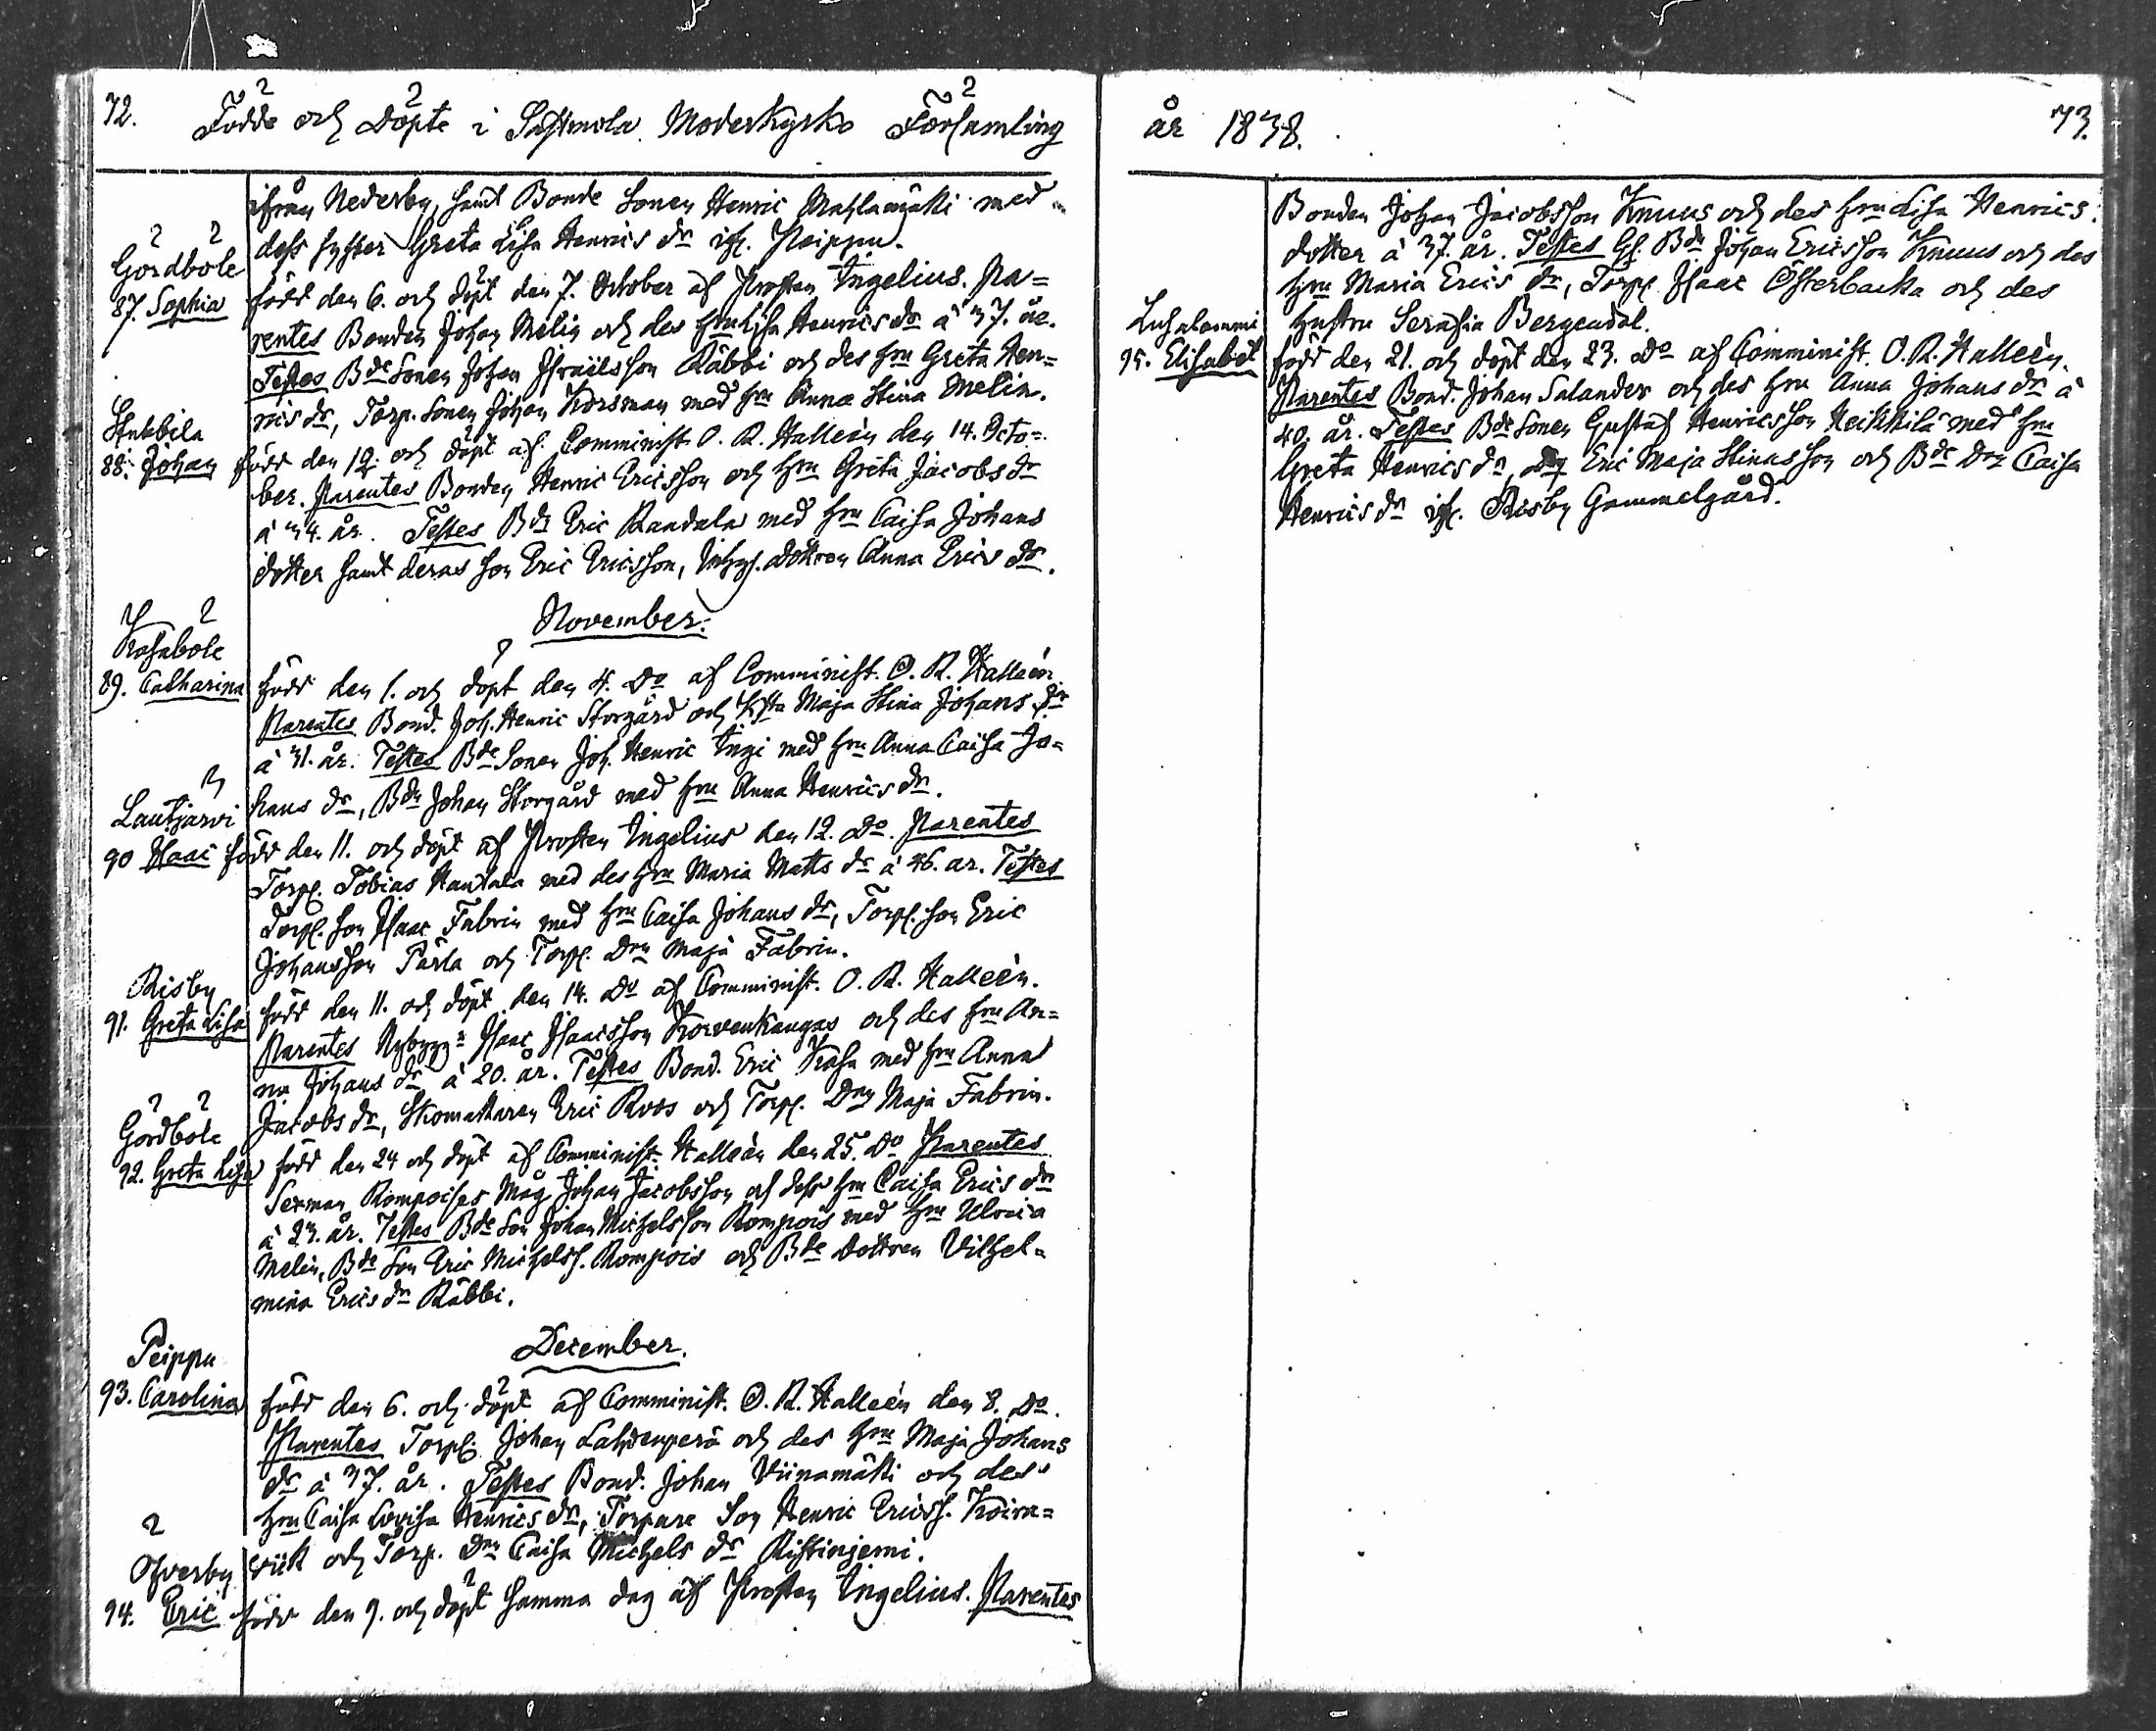 72. Födde och Döpte i Sastmola Moderkyrko Församling
ifrån Nederby, samt Bonde Sonen Henric Mahlamäki med
dess syster Greta Lisa Henrics dr ifr. Peippu.
Gördböle
87. Sophia född den 6. och döpt den 7. October af Prosten Ingelius. Pa=
rentes Bonden Johan Melin och des hru Lisa Henrics dr à 37. år.
Testes Bde Sonen Johan Israëlsson Räbbi och des hru Greta Hen=
rics dr, Torp. Sonen Johan Korsman med hru Anna Stina Melin.
Stubbila
88. Johan född den 12. och döpt af Comminist. O. R. Halleèn den 14. Octo=
ber. Parentes Bonden Henric Ericsson och hru Greta Jacobs dr
à 34. år. Testes Bdn Eric Randala med hru Caisa Johans
dotter samt deras son Eric Ericsson, Inhys. dottren Anna Erics dr.
November.
Kasaböle
89. Catharina född den 1. och döpt den 4. Do af Comminist. O. R. Halleèn
Parentes Bond. Joh. Henric Storgård och Hsta Maja Stina Johans dr
à 31. år. Testes Bde Sonen Joh. Henric Ingi med hru Anna Caisa Jo=
hans dr, Bdn Johan Storgård med hru Anna Henrics dr.
Lautjärvi
90 Isaac född den 11. och döpt af Prosten Ingelius den 12. Do. Parentes
Torp. Tobias Hautala med des hru Maria Matts dr à 46. år. Testes
Torp. son Isaac Fabrin med hru Caisa Johans dr, Torp. son Eric
Johansson Pärla och Torp. Drn Maja Fabrin.
Risby
91. Greta Lisa född den 11. och döpt den 14. Do af Comminist. O. R. Halleèn.
Parentes Nybygg. Isaac Isaacsson Korvenkangas och des hru An=
na Johans dr à 20. år. Testes Bond. Eric Kasa med hru Anna
Jacobs dr, Skomakaren Eric Roos och Torp. Drn Maja Fabrin.
Gördböle
92. Greta Lisa född den 24 och döpt af Comminist. Halleèn den 25. Do Parentes
Sexman Rompoises Måg Johan Jacobsson och dess hru Caisa Erics dr
à 23. år. Testes Bde Son Johan Michelsson Rompois med hru Ulrica
Melin, Bde Son Eric Michelss. Rompois och Bde Dottren Vilhel=
mina Erics dr Räbbi.
December.
Peippu
93. Carolina född den 6. och döpt af Comminist. O. R. Halleèn den 8. Do.
Parentes Torp. Johan Lahdenperä och des hru Maja Johans
dr à 37. år. Testes Bond. Johan Viinamäki och des
hru Caisa Lovisa Henrics dr, Torpare Son Henric Ericss. Koira=
viik och Torp. Drn Caisa Michels dr Ristinjemi.
Ofverby
94. Eric född den 9. och döpt samma dag af Prosten Ingelius. Parentes
år 1838. 73.
Bonden Johan Jacobsson Knuus och des hru Lisa Henrics
dotter à 37. år. Testes Gl. Bdn Johan Ericsson Knuus och des
hru Maria Erics dr, Torp. Isaac Österbacka och des
hustru Serafia Bergendal.
Lusalammi
95. Elisabet född den 21. och döpt den 23. Do af Comminist. O. R. Halleèn.
Parentes Bond. Johan Salander och des hru Anna Johans dr à
40. år. Testes Bde Sonen Gustaf Henricsson Heikkilä med hru
Greta Henrics dr, Eric Maja Stinasson och Bde Drn Caisa
Henrics dr ifr. Risby Gammelgård.